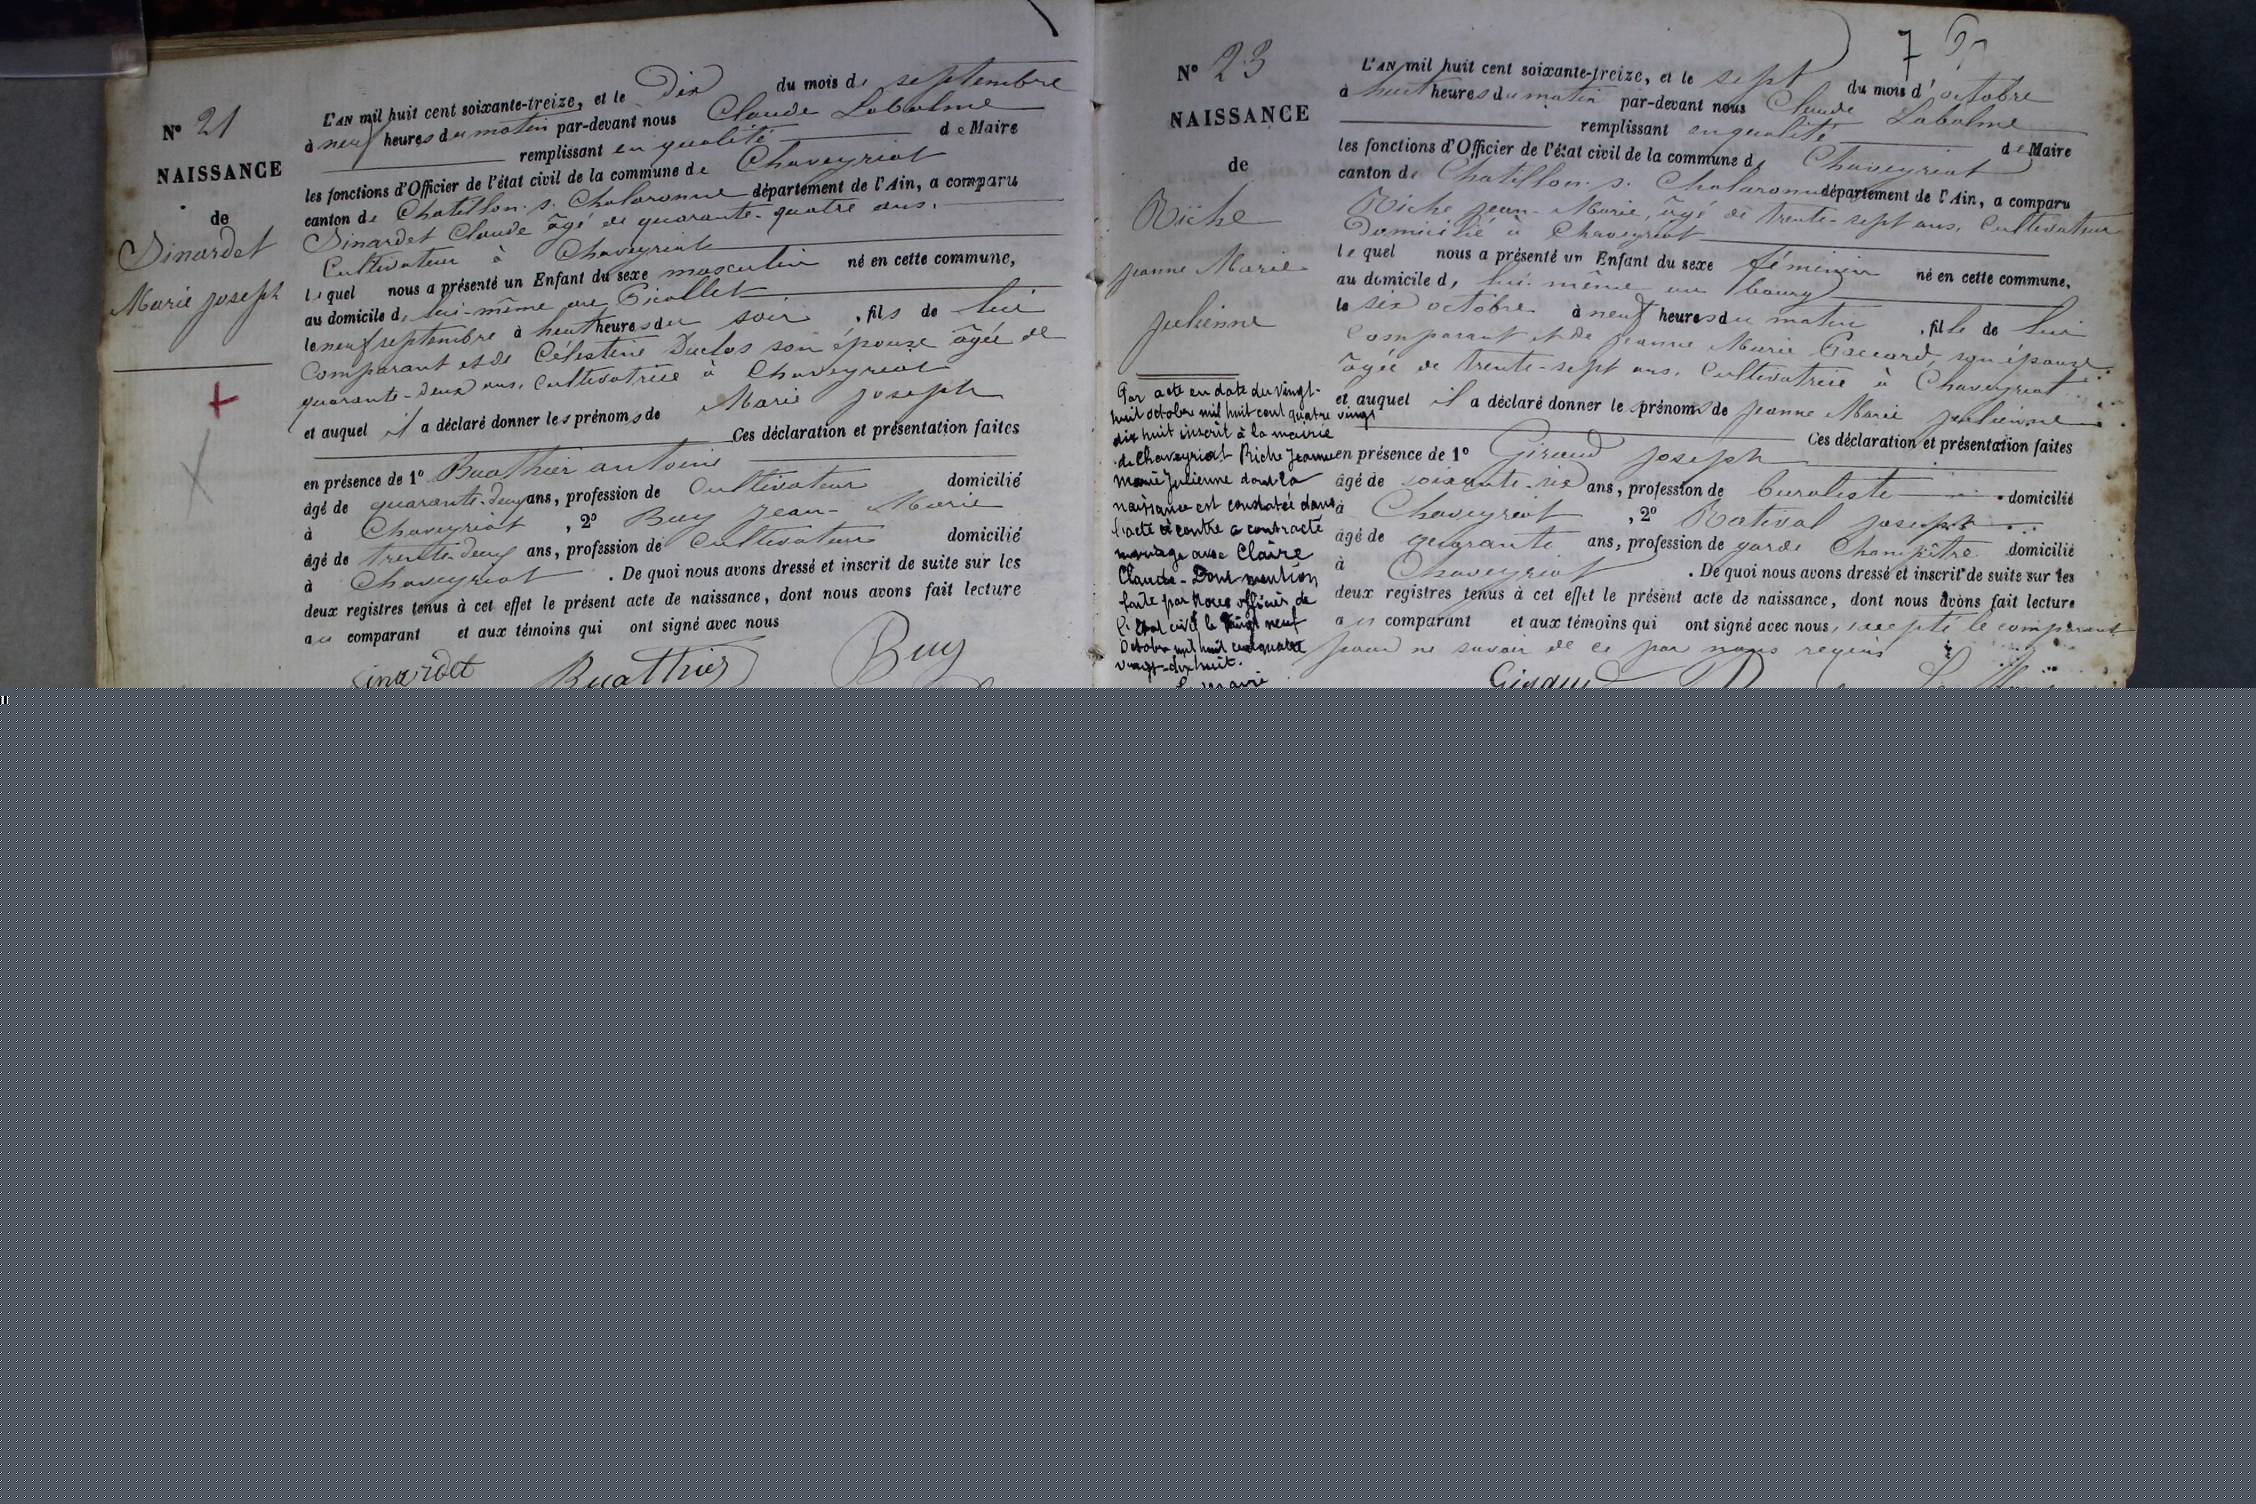 N° 21
NAISSANCE
de
Sinardet
Marie Joseph
L'AN mil huit cent soixante-treize, et le Dix du mois de septembre
à neuf heures du matin par-devant nous Claude Labalme
remplissant en qualité de Maire
les fonctions d'Officier de l'état civil de la commune de Chaveyriat
canton de Chatillon s. Chalaronne département de l'Ain, a comparu
Sinardet Claude âgé de quarante-quatre ans.
Cultivateur à Chaveyriat
lequel nous a présenté un Enfant du sexe masculin né en cette commune,
au domicile de lui-même au Picollet
le neuf septembre à huit heures du soir, fils de lui
Comparant et de Célestine Duclos son épouse âgée de
quarante-deux ans, Cultivatrice à Chaveyriat
et auquel il a déclaré donner les prénoms de Marie Joseph
Ces déclaration et présentation faites
en présence de 1° Buathier antoine
âgé de quarante-deux ans, profession de Cultivateur domicilié
à Chaveyriat, 2° Buy Jean-Marie
âgé de trente-deux ans, profession de Cultivateur domicilié
à Chaveyriat. De quoi nous avons dressé et inscrit de suite sur les
deux registres tenus à cet effet le présent acte de naissance, dont nous avons fait lecture
au comparant et aux témoins qui ont signé avec nous
Sinardet Buathier Buy
7
N° 23
NAISSANCE
de
Riche
Jeanne Marie
Julienne
Par acte en date du vingt-
huit octobre mil huit cent quatre vingt
dix huit inscrit à la mairie
de Chaveyriat Riche Jeanne
Marie Julienne dont la
naissance est constatée dans
l'acte ci contre a contracté
mariage avec Claire
Claude - Dont mention
faite par Nous officier de
l'état civil le vingt neuf
Octobre mil huit cent quatre
vingt-dix huit.
L'AN mil huit cent soixante-treize, et le sept du mois d'octobre
à huit heures du matin par-devant nous Claude Labalme
remplissant en qualité de Maire
les fonctions d'Officier de l'état civil de la commune de Chaveyriat
canton de Chatillon s. Chalaronne département de l'Ain, a comparu
Riche Jean-Marie, âgé de trente-sept ans, Cultivateur
Domicilié à Chaveyriat
lequel nous a présenté un Enfant du sexe féminin né en cette commune,
au domicile de lui-même au bourg
le six octobre à neuf heures du matin, fille de lui
Comparant et de Jeanne Marie Paccard, son épouse
âgée de trente-sept ans, Cultivatrice à Chaveyriat
et auquel il a déclaré donner les prénoms de Jeanne Marie Julienne
Ces déclaration et présentation faites
en présence de 1° Giraud Joseph
âgé de soixante-six ans, profession de buraliste domicilié
à Chaveyriat, 2° Rativel Joseph
âgé de quarante ans, profession de garde Champêtre domicilié
à Chaveyriat. De quoi nous avons dressé et inscrit de suite sur les
deux registres tenus à cet effet le présent acte de naissance, dont nous avons fait lecture
au comparant et aux témoins qui ont signé avec nous, excepté le comparant
pour ne savoir de ce par nous requis
Giraud